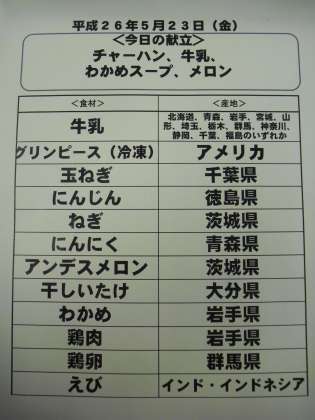 平成２６年５月２３日（金）
＜今日の献立＞
チャーハン、牛乳、
わかめスープ、メロン
＜食材＞ ＜産地＞
牛乳 北海道、青森、岩手、宮城、山
形、埼玉、栃木、群馬、神奈川、
静岡、千葉、福島のいずれか
グリンピース（冷凍） アメリカ
玉ねぎ 千葉県
にんじん 徳島県
ねぎ 茨城県
にんにく 青森県
アンデスメロン 茨城県
干しいたけ 大分県
わかめ 岩手県
鶏肉 岩手県
鶏卵 群馬県
えび インド・インドネシア